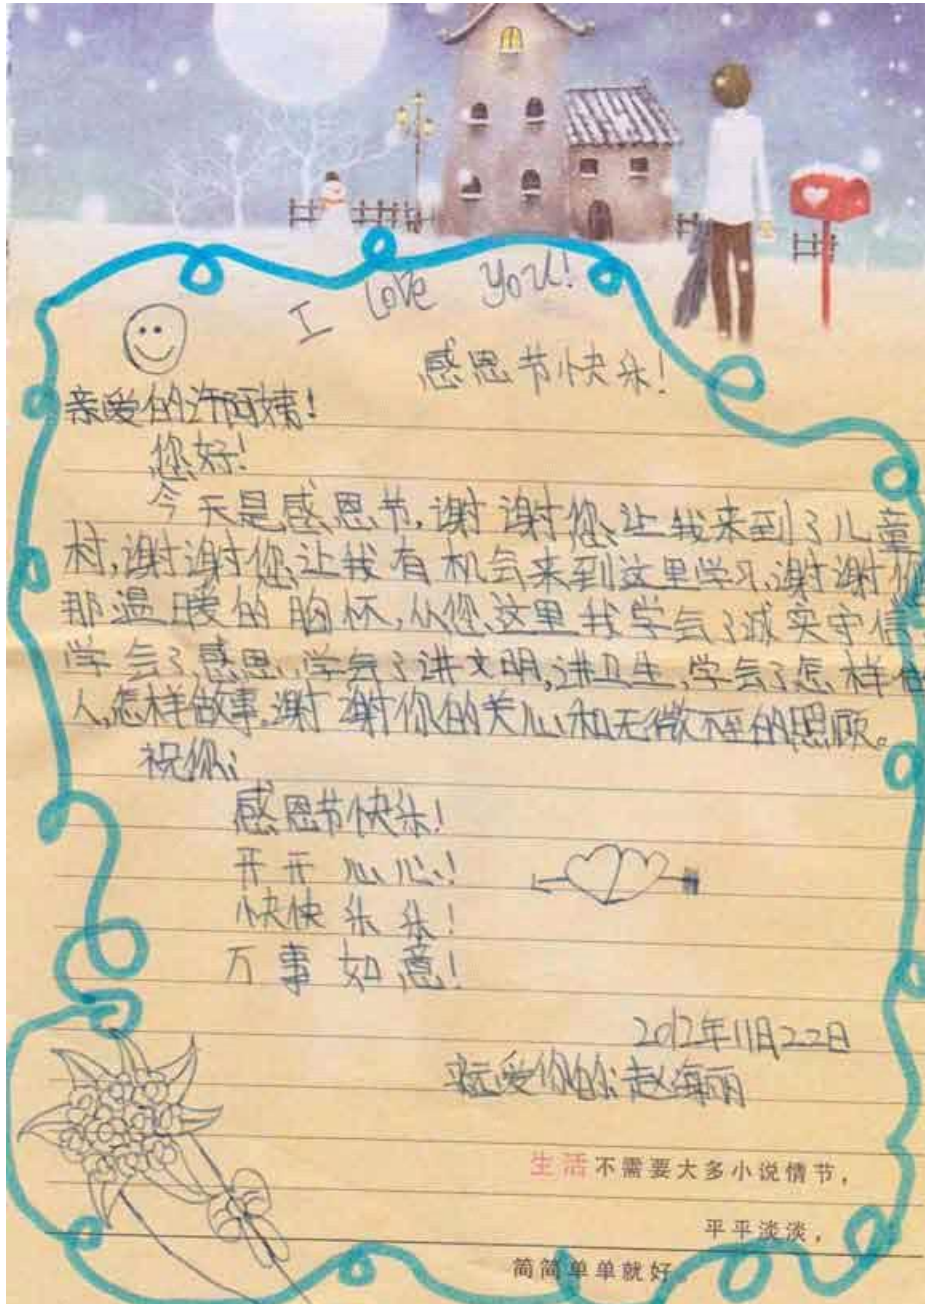 I love you!
感恩节快乐!
亲爱的许阿姨!
您好!
今天是感恩节,谢谢您让我来到了儿童
村,谢谢您让我有机会来到这里学习,谢谢你
那温暖的胸怀,从您这里我学会了诚实守信,
学会了感恩,学会了讲文明,讲卫生,学会了怎样做
人,怎样做事,谢谢你的关心和无微不至的照顾。
祝你:
感恩节快乐!
开开心心!
快快乐乐!
万事如意!
2012年11月22日
永远爱你的:赵海丽
生活不需要大多小说情节,
平平淡淡,
简简单单就好